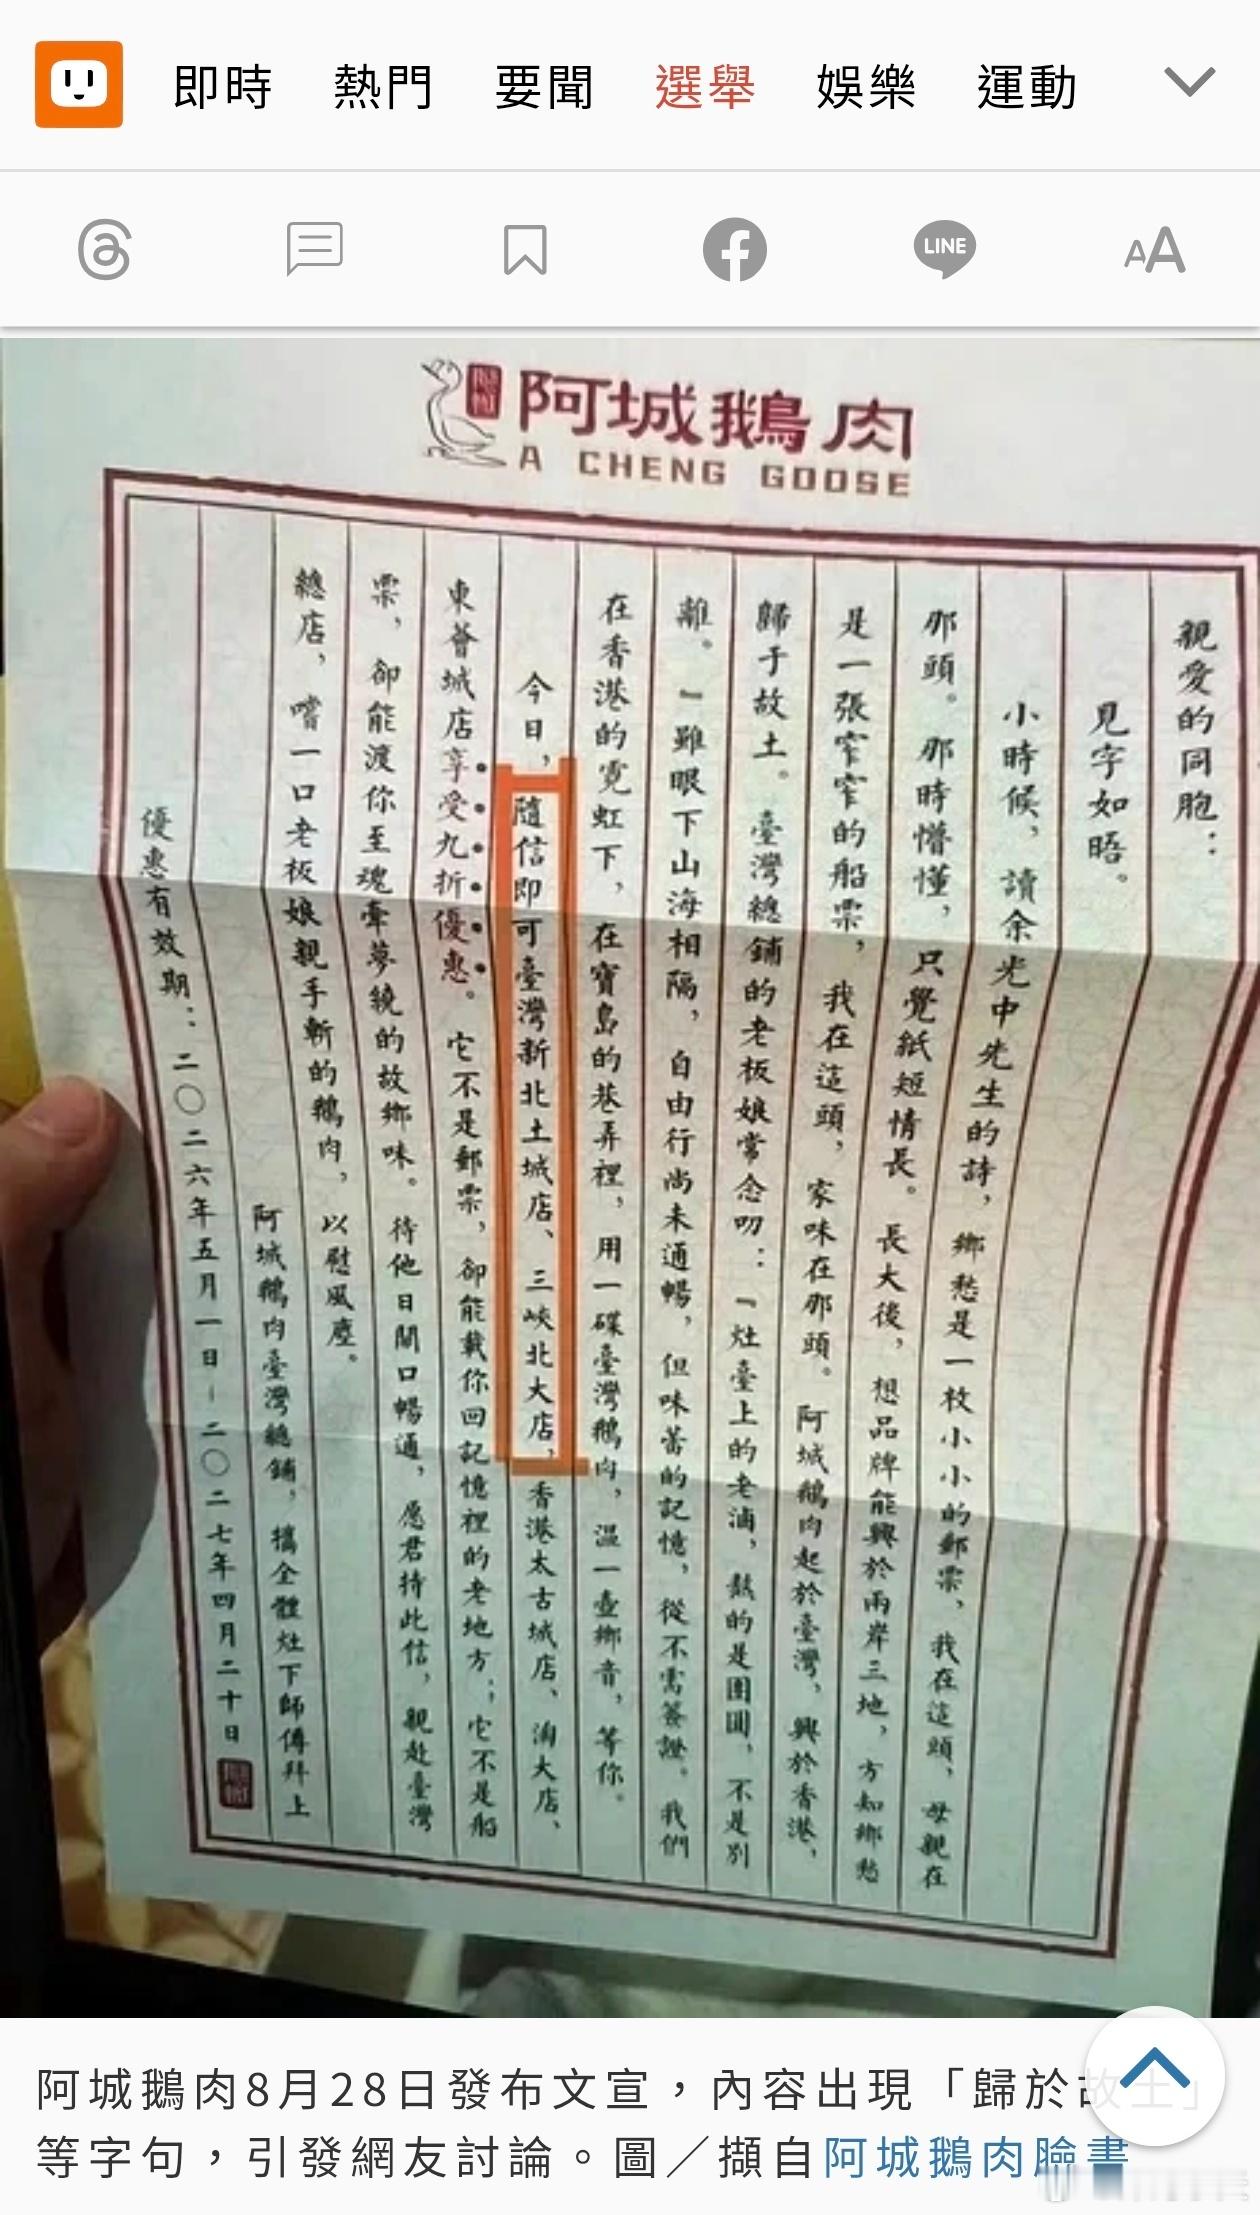 即時 熱門 要聞 選舉 娛樂 運動
LINE
AA
阿城鵝肉
A CHENG GOOSE
親愛的同胞：
見字如晤。
小時候，讀余光中先生的詩，鄉愁是一枚小小的郵票，我在這頭，母親在
那頭。那時懵懂，只覺紙短情長。長大後，想品牌能興於兩岸三地，方知鄉愁
是一張窄窄的船票，我在這頭，家味在那頭。阿城鵝肉起於臺灣，興於香港，
歸于故土。臺灣總鋪的老板娘常念叨：『灶臺上的老滷，熬的是團圓，不是別
離。』雖眼下山海相隔，自由行尚未通暢，但味蕾的記憶，從不需簽證。我們
在香港的霓虹下，在寶島的巷弄裡，用一碟臺灣鵝肉，溫一壺鄉音，等你。
今日，隨信即可臺灣新北土城店、三峽北大店，香港太古城店、淘大店、
東薈城店享受九折優惠。它不是郵票，卻能載你回記憶裡的老地方；它不是船
票，卻能渡你至魂牽夢繞的故鄉味。待他日關口暢通，愿君持此信，親赴臺灣
總店，嚐一口老板娘親手斬的鵝肉，以慰風塵。
阿城鵝肉臺灣總鋪，攜全體灶下師傅拜上
優惠有效期：二〇二六年五月一日-二〇二七年四月二十日
阿城鵝肉8月28日發布文宣，內容出現「歸於故土」
等字句，引發網友討論。圖／擷自阿城鵝肉臉書